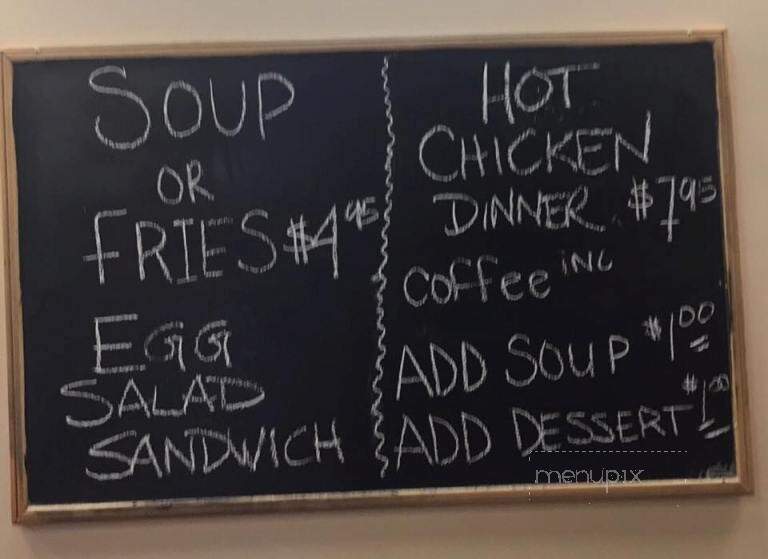 SOUP
OR
FRIES $4.95
EGG
SALAD
SANDWICH
HOT
CHICKEN
DINNER $7.95
coffee INC
ADD SOUP $1.00
ADD DESSERT $1.00
menupix